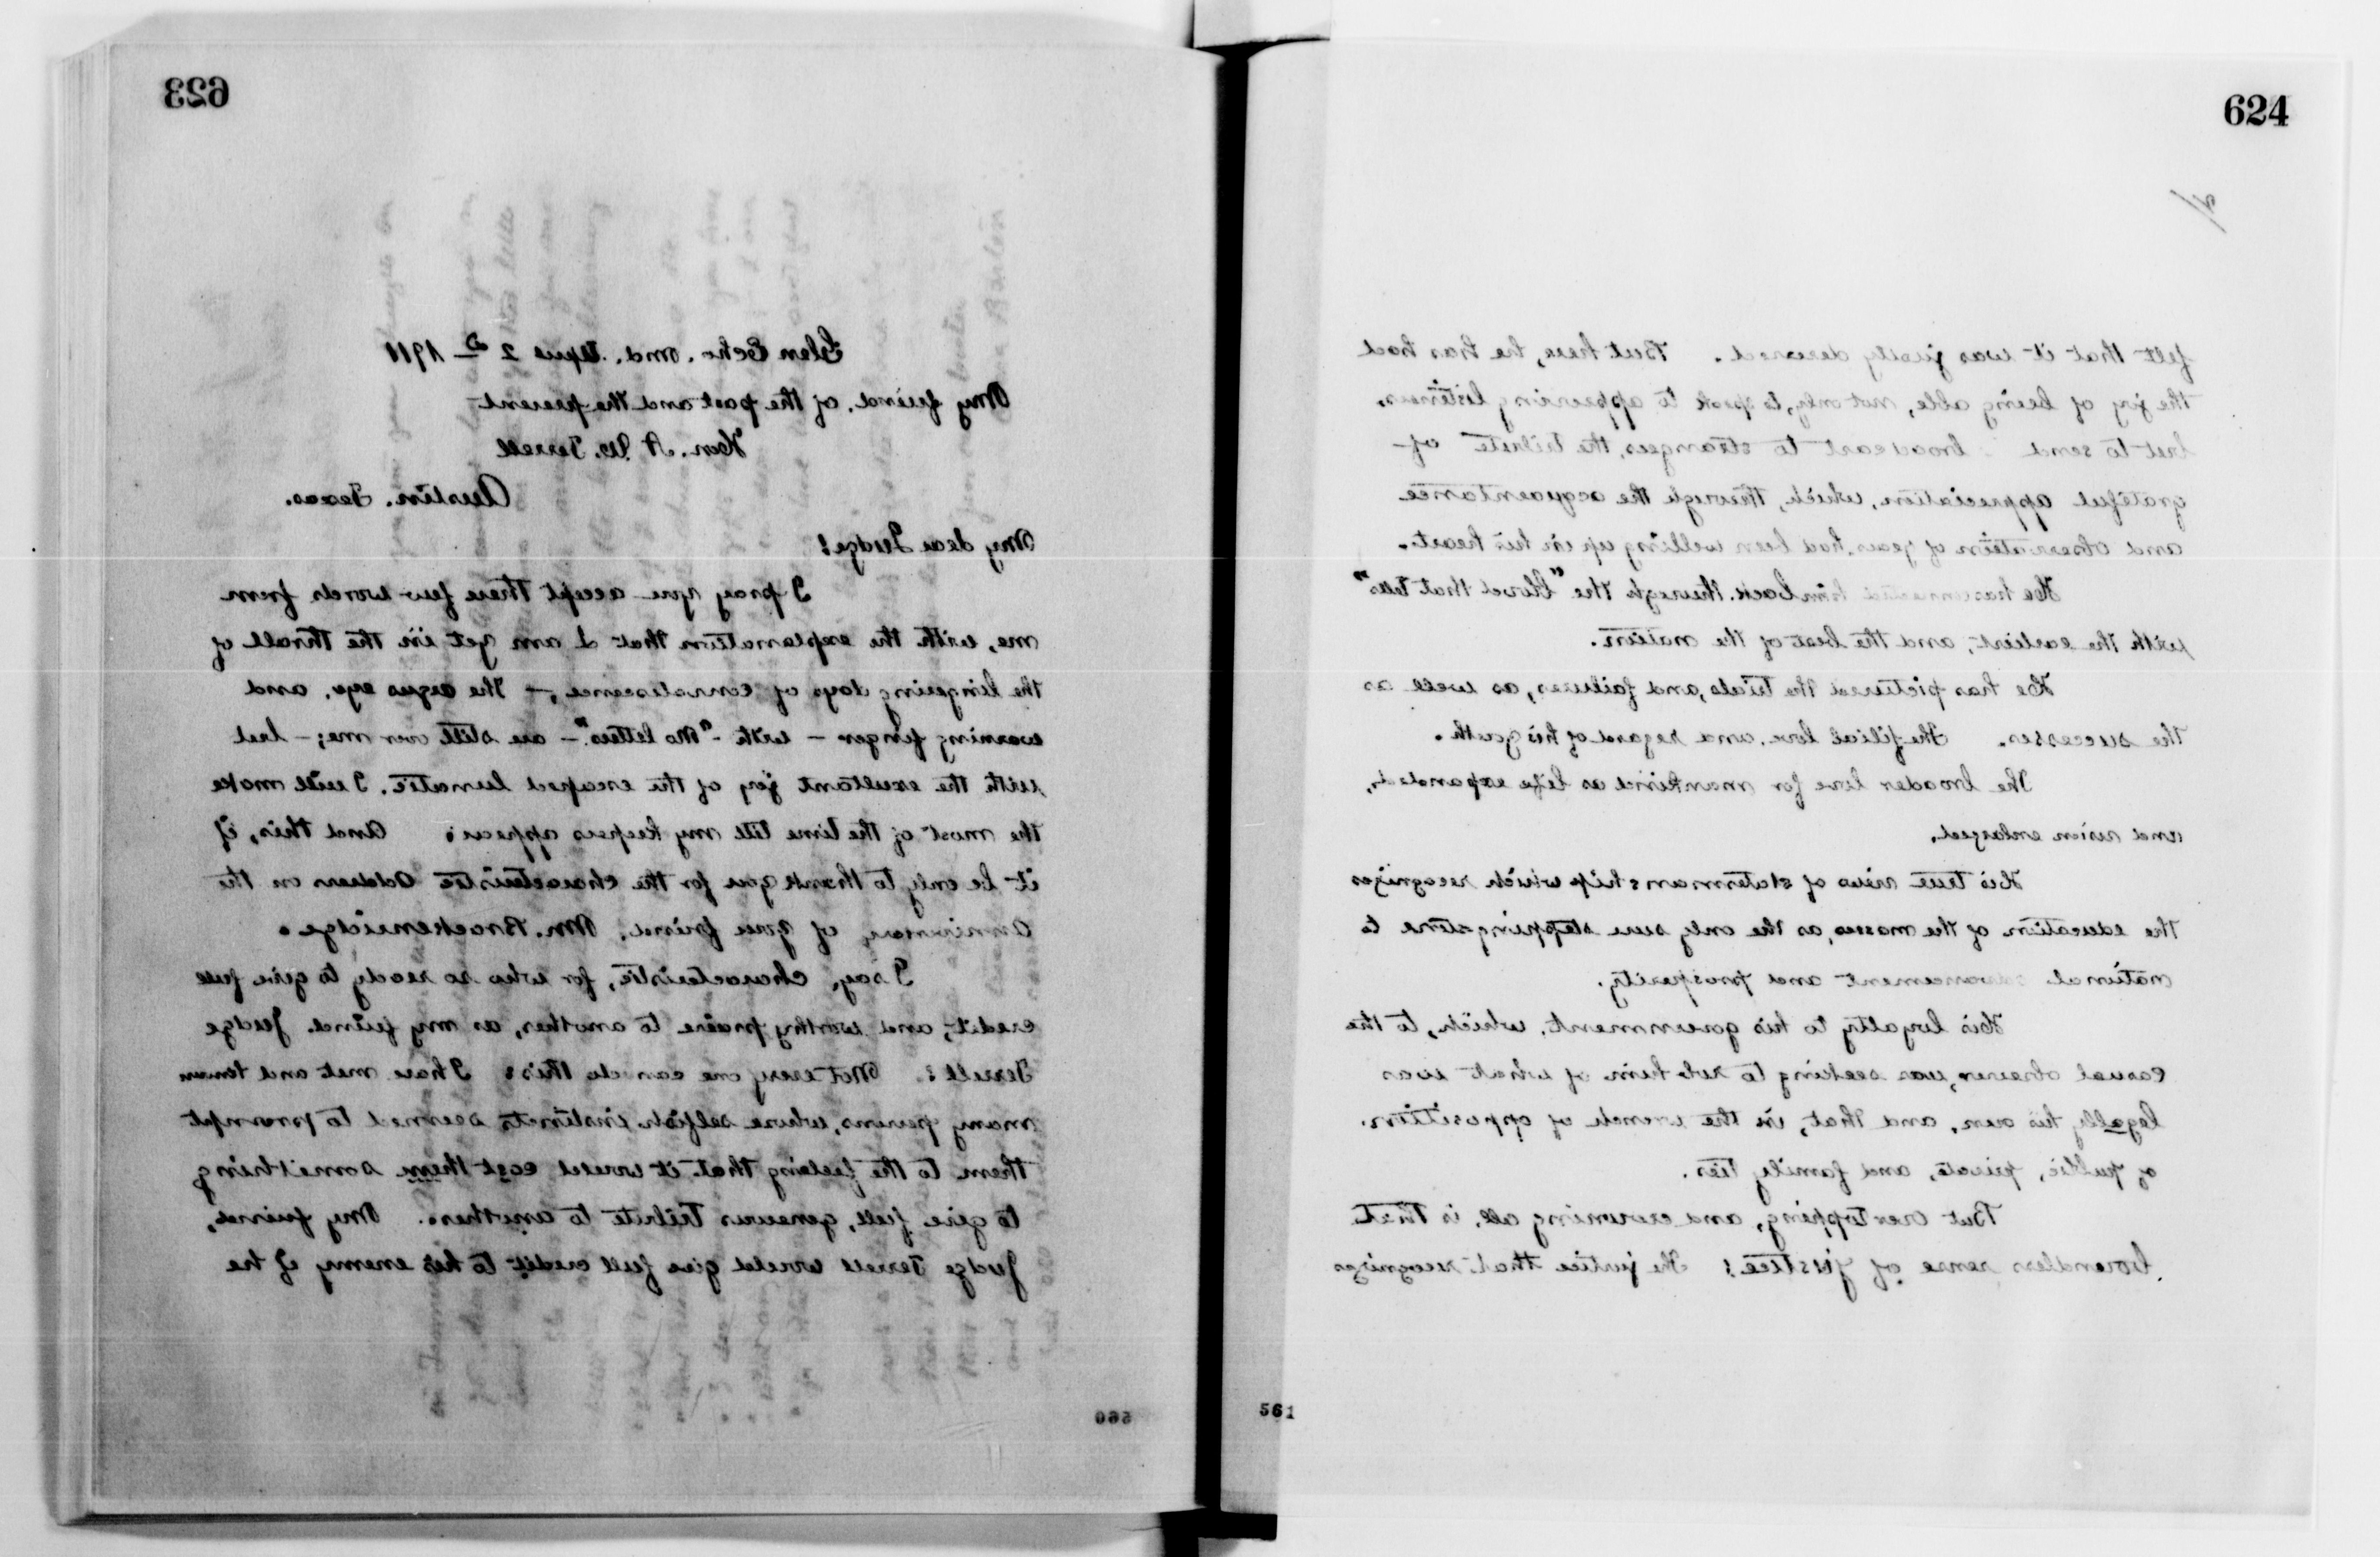 623
Glen Echo. Md. April 2d 1911
My friend, of the past and the present
Hon. A. W. Terrell
Austin. Texas.
My dear Judge!
I pray you accept these few words from
me, with the explanation that I am yet in the thrall of
the lingering days of convalescence, — the argus eye, and
warning finger — with "No letters" — are still over me; — but
with the exultant joy of the escaped lunatic, I will make
the most of the time till my keepers appear; And this, if
it be only to thank you for the characteristic address on the
anniversary of your friend, Mr. Brackenridge.
I say, characteristic, for who so ready to give full
credit, and worthy praise to another, as my friend, Judge
Terrell? Not every one can do this; I have met and known
many persons, whose selfish instincts seemed to prompt
them to the feeling that it would cost them something
to give full, generous tribute to another. My friend,
Judge Terrell would give full credit to his enemy if he
560
624
2/
felt that it was justly deserved. But here, he has had
the joy of being able, not only, to speak to approving listeners,
but to send broadcast to strangers, the tribute of
grateful appreciation, which, through the acquaintance
and observation of years, had been welling up in his heart.
He has connected him back, through the "blood that tells"
with the earliest, and the best of the nation.
He has pictured the trials, and failures, as well as
the successes. The filial love, and regard of his youth.
The broader love for mankind as life expanded,
and vision enlarged.
His true view of statesmanship which recognizes
the education of the masses, as the only sure stepping stone to
national advancement and prosperity.
His loyalty to his government, which, to the
casual observer, was seeking to rob him of what was
legally his own, and that, in the wrench of opposition
of public, private, and family ties.
But overtopping, and crowning all, is that
boundless sense of justice; the justice that recognizes
561